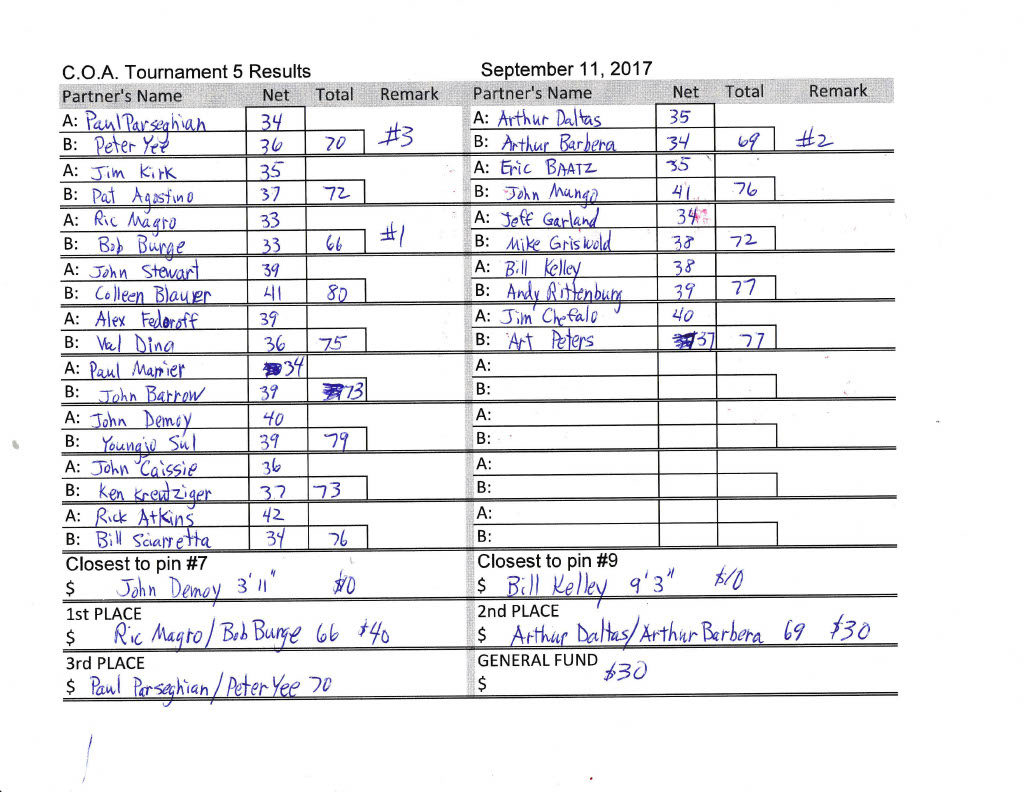 C.O.A. Tournament 5 Results September 11, 2017
Partner's Name Net Total Remark Partner's Name Net Total Remark
A: Paul Parseghian 34 A: Arthur Daltas 35
B: Peter Yee 36 70 #3 B: Arthur Barbera 34 69 #2
A: Jim Kirk 35 A: Eric BAATZ 35
B: Pat Agostino 37 72 B: John Mango 41 76
A: Ric Magro 33 A: Jeff Garland 34
B: Bob Burge 33 66 #1 B: Mike Griswold 38 72
A: John Stewart 39 A: Bill Kelley 38
B: Colleen Blauyer 41 80 B: Andy Rittenburg 39 77
A: Alex Fedoroff 39 A: Jim Chefalo 40
B: Val Dina 36 75 B: Art Peters 37 77
A: Paul 34 A:
B: John Barrow 39 73 B:
A: John Demoy 40 A:
B: Youngju Sul 39 79 B:
A: John Caissie 36 A:
B: Ken Kreutziger 37 73 B:
A: Rick Atkins 42 A:
B: Bill Sciarretta 34 76 B:
Closest to pin #7 Closest to pin #9
$ John Demoy 3'11" $10 $ Bill Kelley 9'3" $10
1st PLACE 2nd PLACE
$ Ric Magro/Bob Burge 66 $40 $ Arthur Daltas/Arthur Barbera 69 $30
3rd PLACE GENERAL FUND $30
$ Paul Parseghian/Peter Yee 70 $